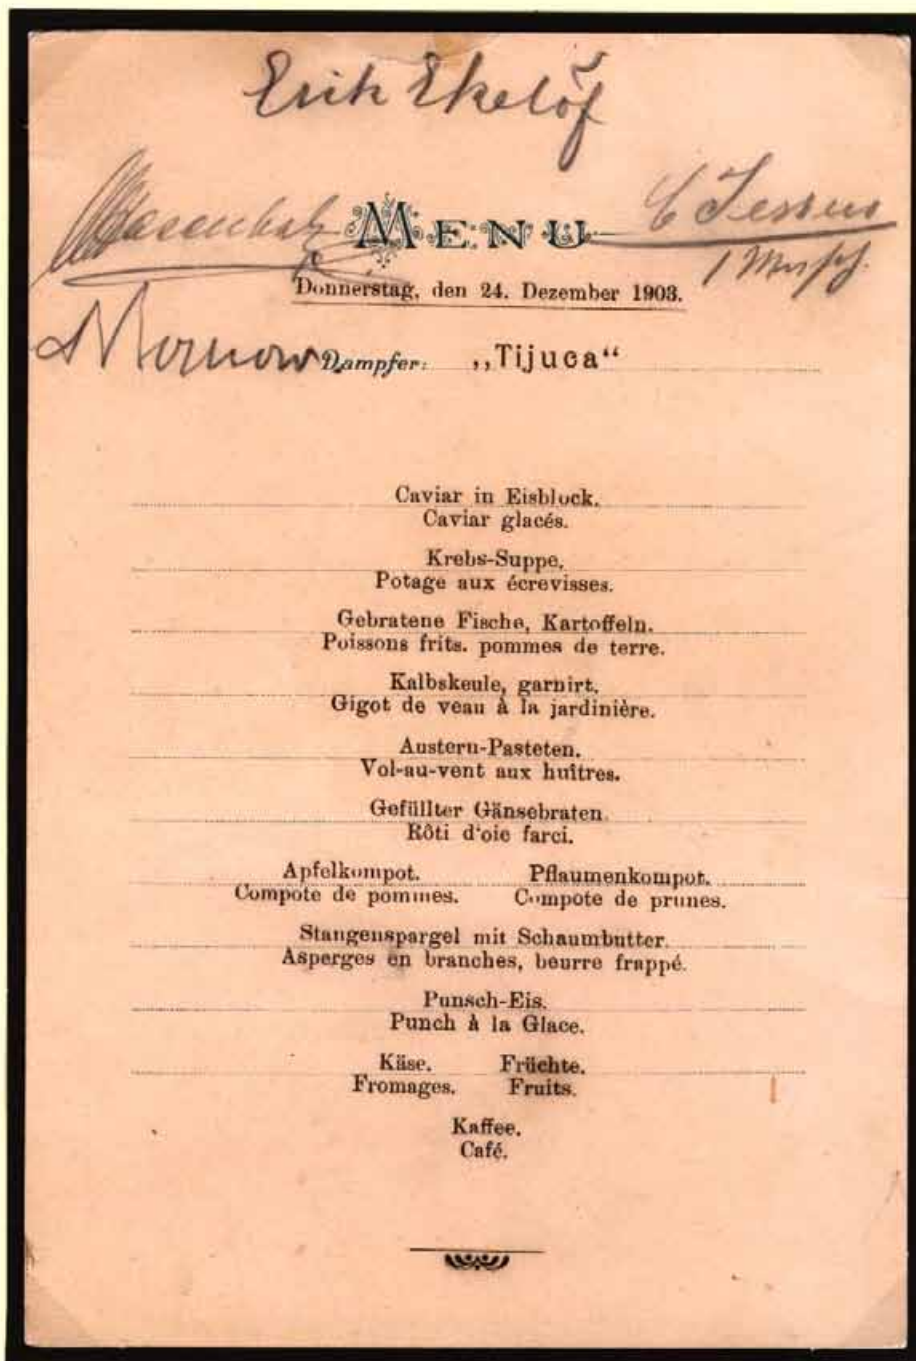 Erik Ekelöf
MENU
Donnerstag, den 24. Dezember 1903.
Dampfer: „Tijuca“
Caviar in Eisblock.
Caviar glacés.
Krebs-Suppe.
Potage aux écrevisses.
Gebratene Fische, Kartoffeln.
Poissons frits. pommes de terre.
Kalbskeule, garnirt.
Gigot de veau à la jardinière.
Austern-Pasteten.
Vol-au-vent aux huîtres.
Gefüllter Gänsebraten.
Rôti d'oie farci.
Apfelkompot. Pflaumenkompot.
Compote de pommes. Compote de prunes.
Stangenspargel mit Schaumbutter.
Asperges en branches, beurre frappé.
Punsch-Eis.
Punch à la Glace.
Käse. Früchte.
Fromages. Fruits.
Kaffee.
Café.